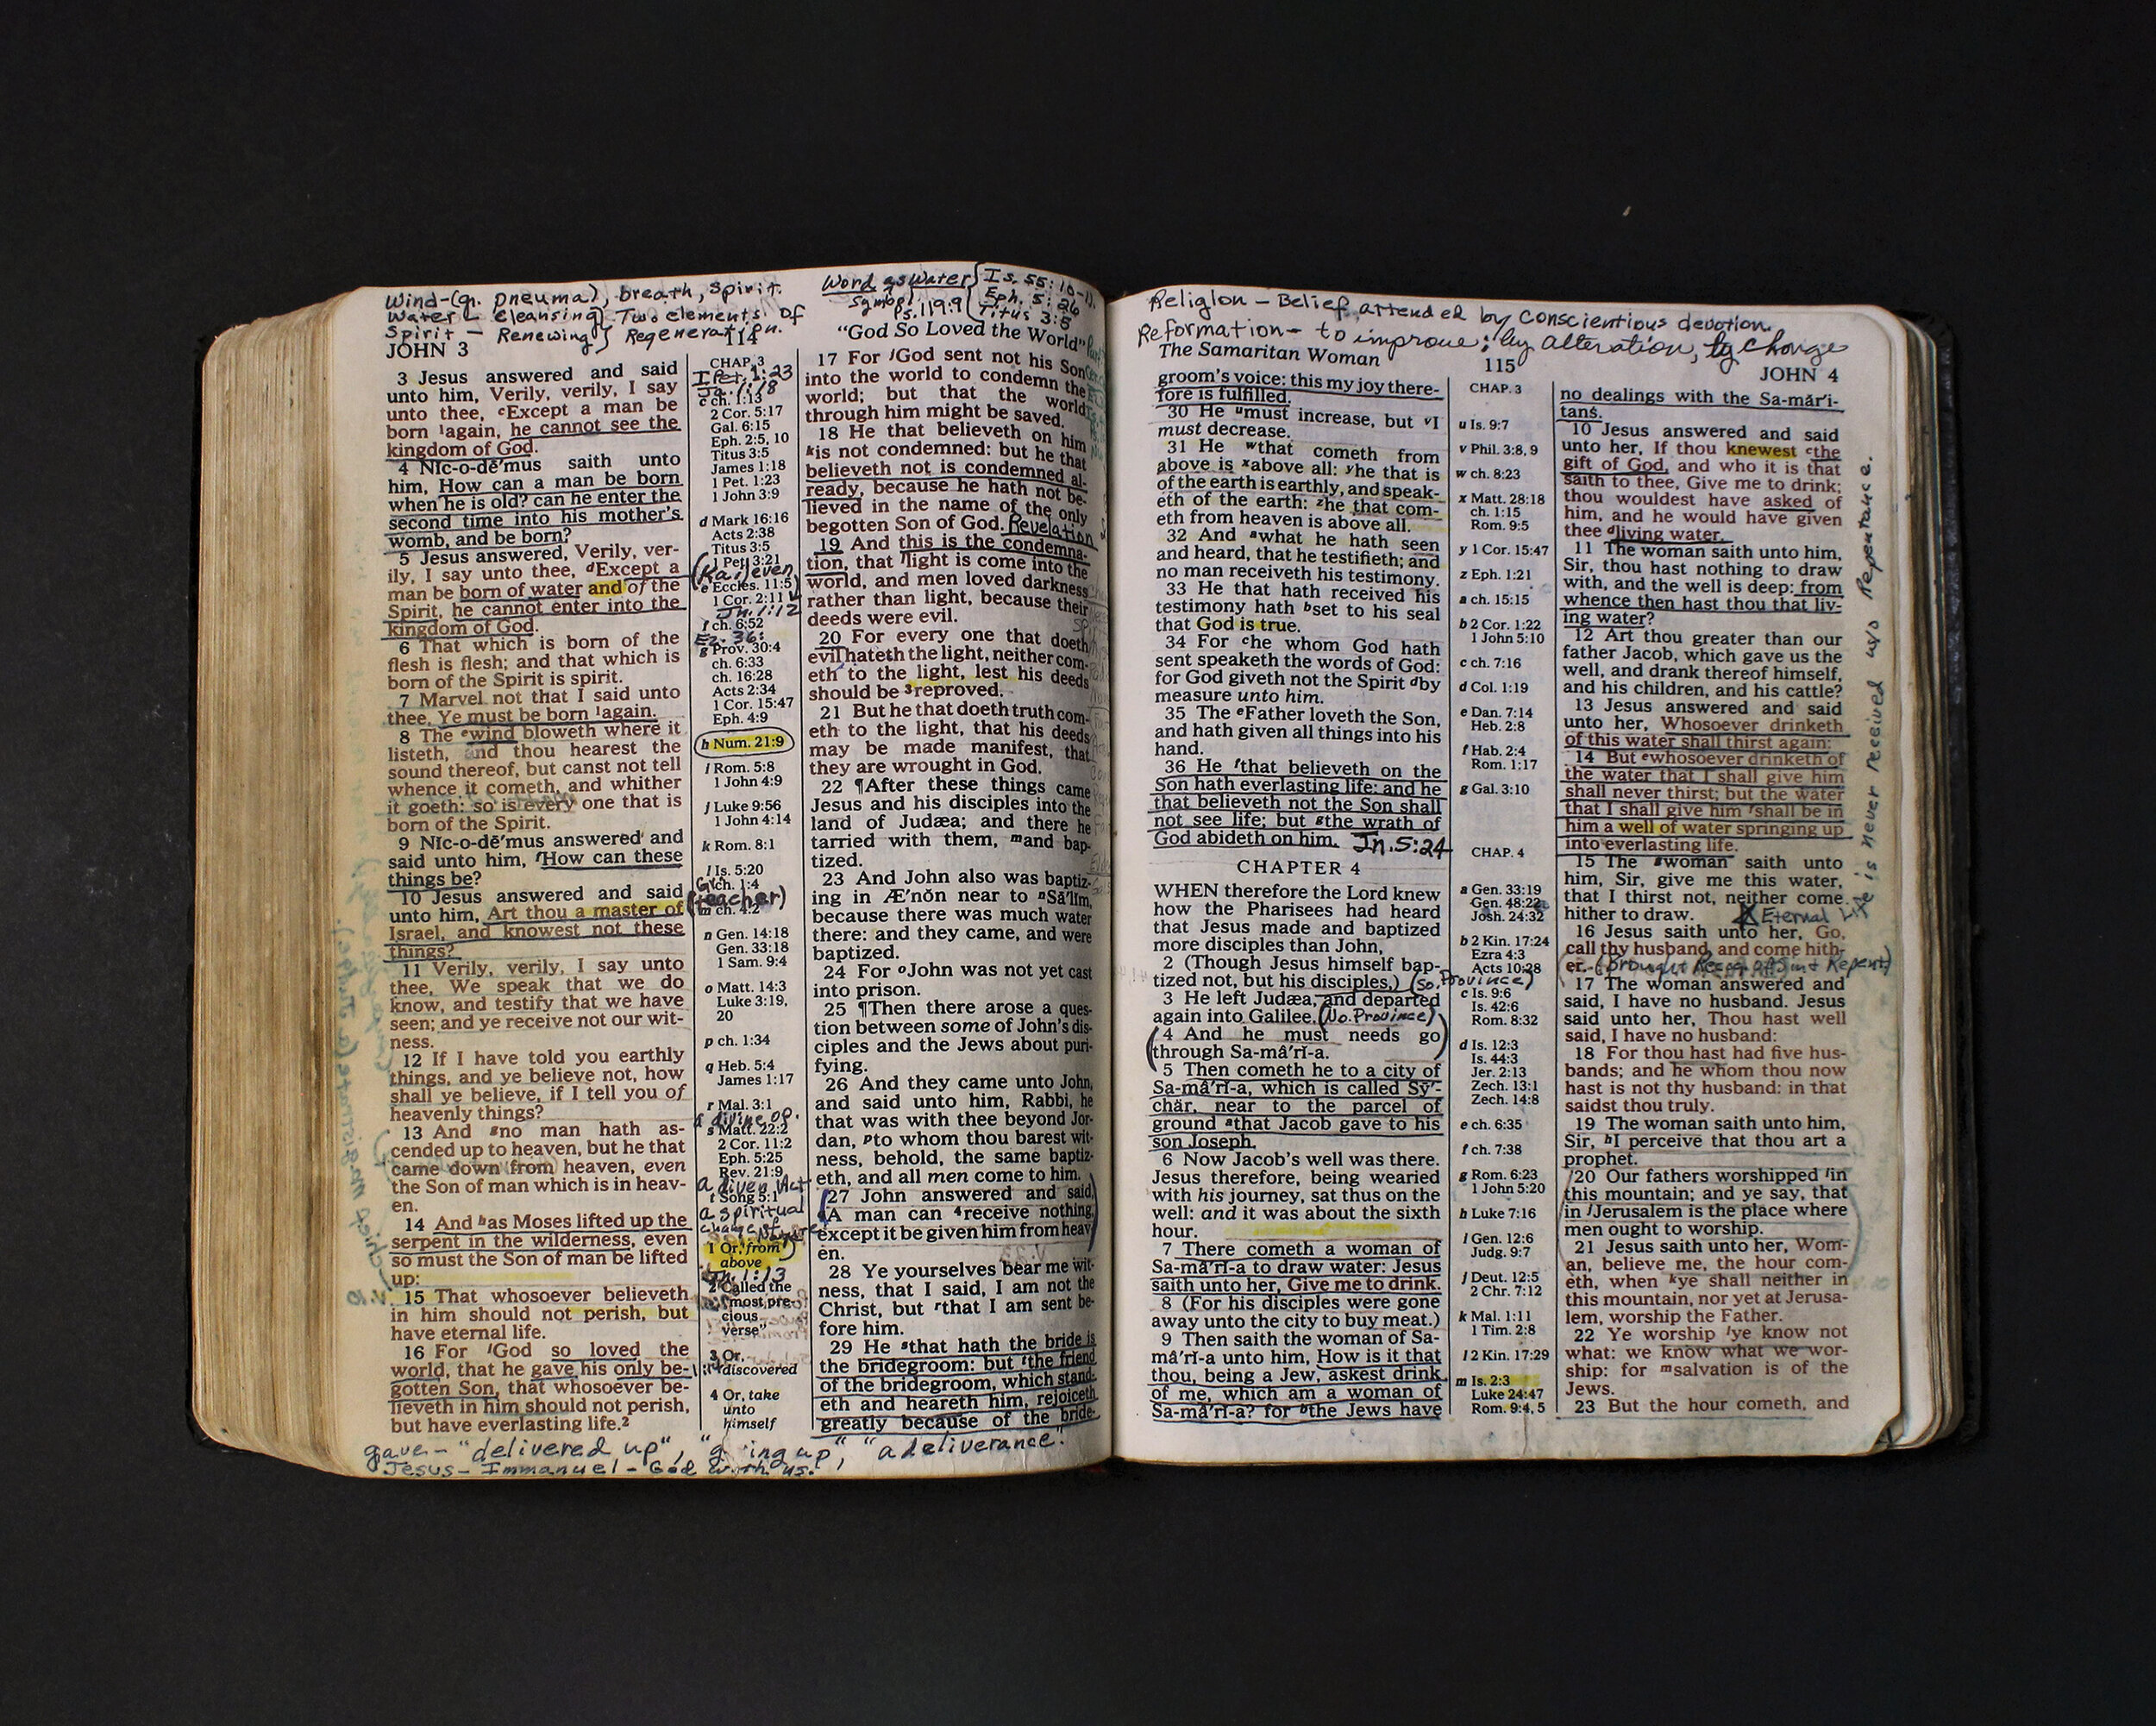 Wind-(gr. pneuma), breath, spirit.
Water - cleansing} Two elements of
Spirit - Renewing} Regeneration.
JOHN 3
114
3 Jesus answered and said
unto him, Verily, verily, I say
unto thee, cExcept a man be
born 1again, he cannot see the
kingdom of God.
4 Nĭc-o-dē′mus saith unto
him, How can a man be born
when he is old? can he enter the
second time into his mother's
womb, and be born?
5 Jesus answered, Verily, ver-
ily, I say unto thee, dExcept a
man be born of water and of the
Spirit, he cannot enter into the
kingdom of God.
6 That which is born of the
flesh is flesh; and that which is
born of the Spirit is spirit.
7 Marvel not that I said unto
thee, Ye must be born 1again.
8 The ewind bloweth where it
listeth, and thou hearest the
sound thereof, but canst not tell
whence it cometh, and whither
it goeth: so is every one that is
born of the Spirit.
9 Nĭc-o-dē′mus answered and
said unto him, fHow can these
things be?
10 Jesus answered and said
unto him, Art thou a master of
Israel, and knowest not these
things?
11 Verily, verily, I say unto
thee, We speak that we do
know, and testify that we have
seen; and ye receive not our wit-
ness.
12 If I have told you earthly
things, and ye believe not, how
shall ye believe, if I tell you of
heavenly things?
13 And gno man hath as-
cended up to heaven, but he that
came down from heaven, even
the Son of man which is in heav-
en.
14 And has Moses lifted up the
serpent in the wilderness, even
so must the Son of man be lifted
up:
15 That whosoever believeth
in him should not perish, but
have eternal life.
16 For iGod so loved the
world, that he gave his only be-
gotten Son, that whosoever be-
lieveth in him should not perish,
but have everlasting life.2
CHAP. 3
I Pet. 1:23
Ja. 1:18
c ch. 1:13
2 Cor. 5:17
Gal. 6:15
Eph. 2:5, 10
Titus 3:5
James 1:18
1 Pet. 1:23
1 John 3:9
d Mark 16:16
Acts 2:38
Titus 3:5
1 Pet. 3:21
(Kai) even
e Eccles. 11:5
1 Cor. 2:11
Jn. 1:12
f ch. 6:52
Ez. 36:
g Prov. 30:4
ch. 6:33
ch. 16:28
Acts 2:34
1 Cor. 15:47
Eph. 4:9
h Num. 21:9
i Rom. 5:8
1 John 4:9
j Luke 9:56
1 John 4:14
k Rom. 8:1
l Is. 5:20
ch. 1:4
(teacher)
m ch. 4:2
n Gen. 14:18
Gen. 33:18
1 Sam. 9:4
o Matt. 14:3
Luke 3:19,
20
p ch. 1:34
q Heb. 5:4
James 1:17
r Mal. 3:1
a divine op.
s Matt. 22:2
2 Cor. 11:2
Eph. 5:25
Rev. 21:9
a
t Song 5:1
a spiritual
change of
1 Or, from
above
Jn. 1:13
2 Called the
"most pre-
cious
verse"
3 Or,
discovered
4 Or, take
unto
himself
Word as Water {Is. 55:10-11.
Symbol Ps. 119:9 {Eph. 5:26
Titus 3:5
"God So Loved the World"
17 For jGod sent not his Son
into the world to condemn the
world; but that the world
through him might be saved.
18 He that believeth on him
kis not condemned: but he that
believeth not is condemned al-
ready, because he hath not be-
lieved in the name of the only
begotten Son of God. Revelation
19 And this is the condemna-
tion, that llight is come into the
world, and men loved darkness
rather than light, because their
deeds were evil.
20 For every one that doeth
evil hateth the light, neither com-
eth to the light, lest his deeds
should be 3reproved.
21 But he that doeth truth com-
eth to the light, that his deeds
may be made manifest, that
they are wrought in God.
22 ¶After these things came
Jesus and his disciples into the
land of Judæa; and there he
tarried with them, mand bap-
tized.
23 And John also was baptiz-
ing in Æ′nŏn near to nSā′lĭm,
because there was much water
there: and they came, and were
baptized.
24 For oJohn was not yet cast
into prison.
25 ¶Then there arose a ques-
tion between some of John's dis-
ciples and the Jews about puri-
fying.
26 And they came unto John,
and said unto him, Rabbi, he
that was with thee beyond Jor-
dan, pto whom thou barest wit-
ness, behold, the same baptiz-
eth, and all men come to him.
27 John answered and said,
qA man can 4receive nothing,
except it be given him from heav-
en.
28 Ye yourselves bear me wit-
ness, that I said, I am not the
Christ, but rthat I am sent be-
fore him.
29 He sthat hath the bride is
the bridegroom: but tthe friend
of the bridegroom, which stand-
eth and heareth him, rejoiceth
greatly because of the bride-
gave - "delivered up", "g ing up", "a deliverance".
Jesus - Immanuel - God with us.
Religion - Belief attended by conscientious devotion.
Reformation - to improve; by alteration, by change
The Samaritan Woman
115
JOHN 4
groom's voice: this my joy there-
fore is fulfilled.
30 He umust increase, but vI
must decrease.
31 He wthat cometh from
above is xabove all: yhe that is
of the earth is earthly, and speak-
eth of the earth: zhe that com-
eth from heaven is above all.
32 And awhat he hath seen
and heard, that he testifieth; and
no man receiveth his testimony.
33 He that hath received his
testimony hath bset to his seal
that God is true.
34 For che whom God hath
sent speaketh the words of God:
for God giveth not the Spirit dby
measure unto him.
35 The eFather loveth the Son,
and hath given all things into his
hand.
36 He fthat believeth on the
Son hath everlasting life: and he
that believeth not the Son shall
not see life; but gthe wrath of
God abideth on him. Jn. 5:24
CHAPTER 4
WHEN therefore the Lord knew
how the Pharisees had heard
that Jesus made and baptized
more disciples than John,
2 (Though Jesus himself bap-
tized not, but his disciples,) (So. Province)
3 He left Judæa, and departed
again into Galilee. (No. Province)
4 And he must needs go
through Sa-mâ′rĭ-a.
5 Then cometh he to a city of
Sa-mâ′rĭ-a, which is called Sȳ′-
chär, near to the parcel of
ground athat Jacob gave to his
son Joseph.
6 Now Jacob's well was there.
Jesus therefore, being wearied
with his journey, sat thus on the
well: and it was about the sixth
hour.
7 There cometh a woman of
Sa-mâ′rĭ-a to draw water: Jesus
saith unto her, Give me to drink.
8 (For his disciples were gone
away unto the city to buy meat.)
9 Then saith the woman of Sa-
mâ′rĭ-a unto him, How is it that
thou, being a Jew, askest drink
of me, which am a woman of
Sa-mâ′rĭ-a? for bthe Jews have
CHAP. 3
u Is. 9:7
v Phil. 3:8, 9
w ch. 8:23
x Matt. 28:18
ch. 1:15
Rom. 9:5
y 1 Cor. 15:47
z Eph. 1:21
a ch. 15:15
b 2 Cor. 1:22
1 John 5:10
c ch. 7:16
d Col. 1:19
e Dan. 7:14
Heb. 2:8
f Hab. 2:4
Rom. 1:17
g Gal. 3:10
CHAP. 4
a Gen. 33:19
Gen. 48:22
Josh. 24:32
b 2 Kin. 17:24
Ezra 4:3
Acts 10:28
c Is. 9:6
Is. 42:6
Rom. 8:32
d Is. 12:3
Is. 44:3
Jer. 2:13
Zech. 13:1
Zech. 14:8
e ch. 6:35
f ch. 7:38
g Rom. 6:23
1 John 5:20
h Luke 7:16
i Gen. 12:6
Judg. 9:7
j Deut. 12:5
2 Chr. 7:12
k Mal. 1:11
1 Tim. 2:8
l 2 Kin. 17:29
m Is. 2:3
Luke 24:47
Rom. 9:4, 5
no dealings with the Sa-măr′i-
tans.
10 Jesus answered and said
unto her, If thou knewest cthe
gift of God, and who it is that
saith to thee, Give me to drink;
thou wouldest have asked of
him, and he would have given
thee dliving water.
11 The woman saith unto him,
Sir, thou hast nothing to draw
with, and the well is deep: from
whence then hast thou that liv-
ing water?
12 Art thou greater than our
father Jacob, which gave us the
well, and drank thereof himself,
and his children, and his cattle?
13 Jesus answered and said
unto her, Whosoever drinketh
of this water shall thirst again:
14 But ewhosoever drinketh of
the water that I shall give him
shall never thirst; but the water
that I shall give him fshall be in
him a well of water springing up
into everlasting life.
15 The gwoman saith unto
him, Sir, give me this water,
that I thirst not, neither come
hither to draw.
Eternal Life is never received w/o Repentance.
16 Jesus saith unto her, Go,
call thy husband, and come hith-
er. (brought Recog. of Sin & Repent)
17 The woman answered and
said, I have no husband. Jesus
said unto her, Thou hast well
said, I have no husband:
18 For thou hast had five hus-
bands; and he whom thou now
hast is not thy husband: in that
saidst thou truly.
19 The woman saith unto him,
Sir, hI perceive that thou art a
prophet.
20 Our fathers worshipped iin
this mountain; and ye say, that
in jJerusalem is the place where
men ought to worship.
21 Jesus saith unto her, Wom-
an, believe me, the hour com-
eth, when kye shall neither in
this mountain, nor yet at Jerusa-
lem, worship the Father.
22 Ye worship lye know not
what: we know what we wor-
ship: for msalvation is of the
Jews.
23 But the hour cometh, and